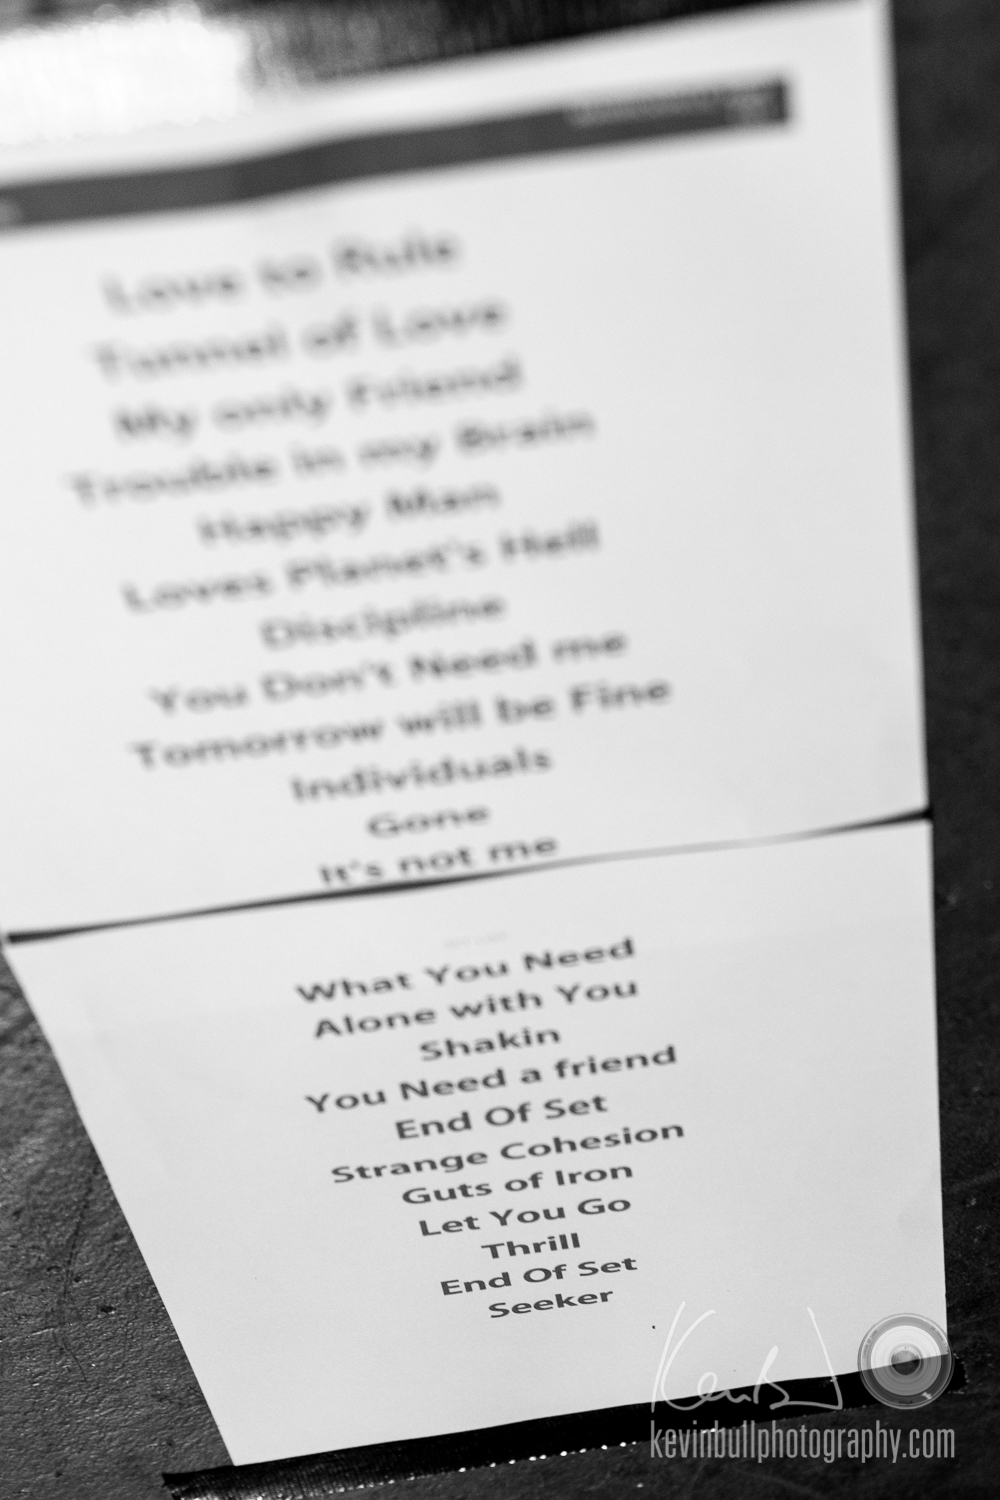 Love to Rule
Tunnel of Love
My only Friend
Trouble in my Brain
Happy Man
Loves Planet's Hell
Discipline
You Don't Need me
Tomorrow will be Fine
Individuals
Gone
It's not me
What You Need
Alone with You
Shakin
You Need a friend
End Of Set
Strange Cohesion
Guts of Iron
Let You Go
Thrill
End Of Set
Seeker
kevinbullphotography.com